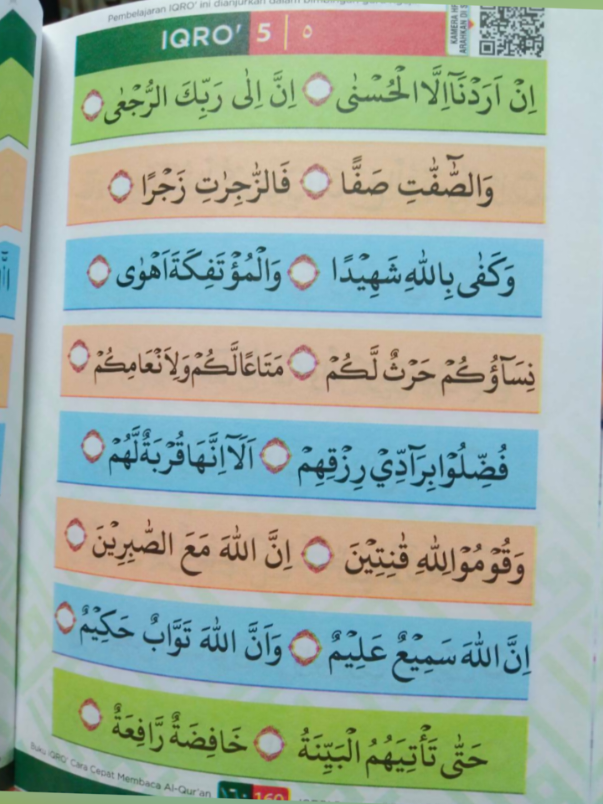 Pembelajaran IQRO' ini dianjurkan dalam
IQRO' 5 ٥
KAMERA
ARAHKAN DI
اِنْ اَرَدْنَآاِلَّا الْحُسْنٰى ۝ اِنَّ اِلٰى رَبِّكَ الرُّجْعٰى ۝
وَالصّٰٓفّٰتِ صَفًّا ۝ فَالزّٰجِرٰتِ زَجْرًا ۝
وَكَفٰى بِاللّٰهِ شَهِيْدًا ۝ وَالْمُؤْتَفِكَةَ اَهْوٰى ۝
نِسَآؤُكُمْ حَرْثٌ لَّكُمْ ۝ مَتَاعًالَّكُمْ وَلِاَنْعَامِكُمْ ۝
فُضِّلُوْابِرَآدِّيْ رِزْقِهِمْ ۝ اَلَآاِنَّهَاقُرْبَةٌلَّهُمْ ۝
وَقُوْمُوْالِلّٰهِ قٰنِتِيْنَ ۝ اِنَّ اللّٰهَ مَعَ الصّٰبِرِيْنَ ۝
اِنَّ اللّٰهَ سَمِيْعٌ عَلِيْمٌ ۝ وَاَنَّ اللّٰهَ تَوَّابٌ حَكِيْمٌ ۝
حَتّٰى تَأْتِيَهُمُ الْبَيِّنَةُ ۝ خَافِضَةٌ رَّافِعَةٌ ۝
Buku IQRO' Cara Cepat Membaca Al-Qur'an ١٦٠ 160